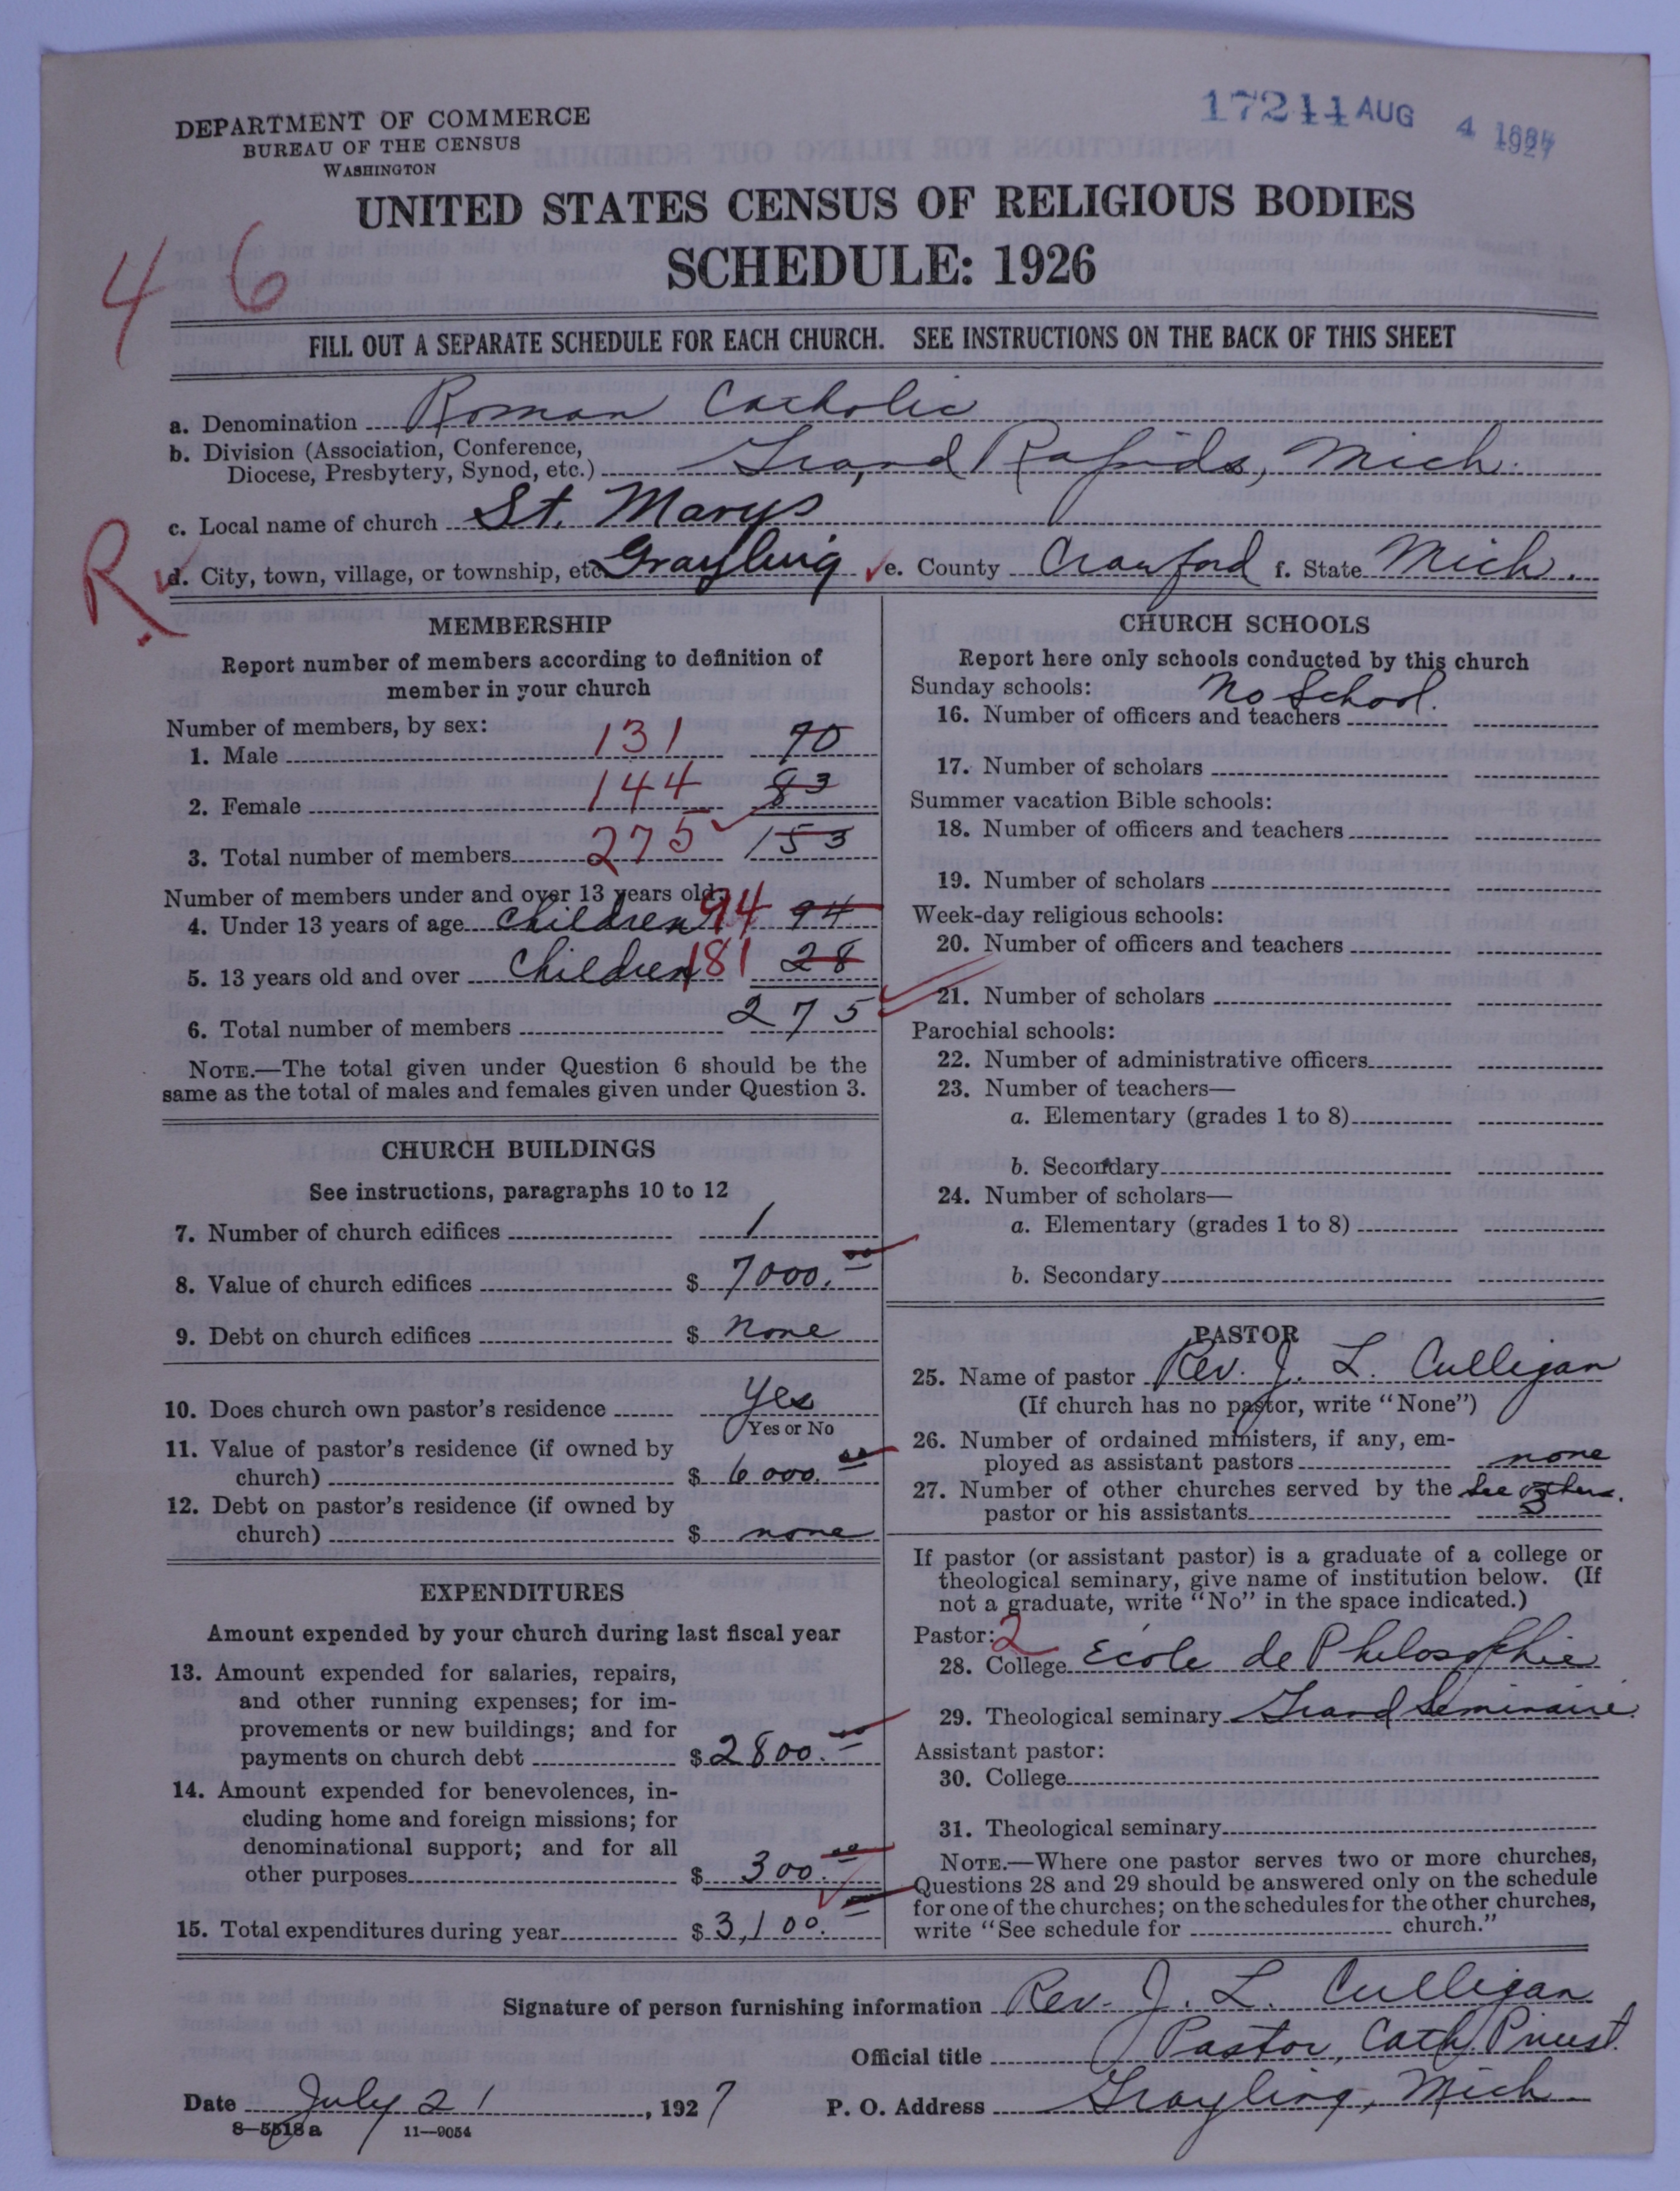 17244 AUG 4 1927
DEPARTMENT OF COMMERCE
BUREAU OF THE CENSUS
WASHINGTON
UNITED STATES CENSUS OF RELIGIOUS BODIES
SCHEDULE: 1926
46
FILL OUT A SEPARATE SCHEDULE FOR EACH CHURCH. SEE INSTRUCTIONS ON THE BACK OF THIS SHEET
a. Denomination Roman Catholic
b. Division (Association, Conference,
Diocese, Presbytery, Synod, etc.) Grand Rapids, Mich.
c. Local name of church St. Marys
R
d. City, town, village, or township, etc. Grayling e. County Crawford f. State Mich.
MEMBERSHIP
Report number of members according to definition of
member in your church
Number of members, by sex:
1. Male 131 70
2. Female 144 83
3. Total number of members 275 153
Number of members under and over 13 years old:
4. Under 13 years of age children 94 94
5. 13 years old and over children 181 28
6. Total number of members 275
NOTE.—The total given under Question 6 should be the
same as the total of males and females given under Question 3.
CHURCH BUILDINGS
See instructions, paragraphs 10 to 12
7. Number of church edifices 1
8. Value of church edifices $ 7000.00
9. Debt on church edifices $ none
10. Does church own pastor's residence yes
Yes or No
11. Value of pastor's residence (if owned by
church) $ 6000.00
12. Debt on pastor's residence (if owned by
church) $ none
EXPENDITURES
Amount expended by your church during last fiscal year
13. Amount expended for salaries, repairs,
and other running expenses; for im-
provements or new buildings; and for
payments on church debt $ 2800.00
14. Amount expended for benevolences, in-
cluding home and foreign missions; for
denominational support; and for all
other purposes $ 300.00
15. Total expenditures during year $ 3,100.00
CHURCH SCHOOLS
Report here only schools conducted by this church
Sunday schools: No School.
16. Number of officers and teachers
17. Number of scholars
Summer vacation Bible schools:
18. Number of officers and teachers
19. Number of scholars
Week-day religious schools:
20. Number of officers and teachers
21. Number of scholars
Parochial schools:
22. Number of administrative officers
23. Number of teachers—
a. Elementary (grades 1 to 8)
b. Secondary
24. Number of scholars—
a. Elementary (grades 1 to 8)
b. Secondary
PASTOR
25. Name of pastor Rev. J. L. Culligan
(If church has no pastor, write "None")
26. Number of ordained ministers, if any, em-
ployed as assistant pastors none
27. Number of other churches served by the see others.
pastor or his assistants 3
If pastor (or assistant pastor) is a graduate of a college or
theological seminary, give name of institution below. (If
not a graduate, write "No" in the space indicated.)
Pastor: 2
28. College École de Philosophie
29. Theological seminary Grand Seminaire.
Assistant pastor:
30. College
31. Theological seminary
NOTE.—Where one pastor serves two or more churches,
Questions 28 and 29 should be answered only on the schedule
for one of the churches; on the schedules for the other churches,
write "See schedule for church."
Signature of person furnishing information Rev. J. L. Culligan
Official title Pastor, Cath. Priest.
Date July 21, 1927 P. O. Address Grayling, Mich
8—5518 a 11—9054